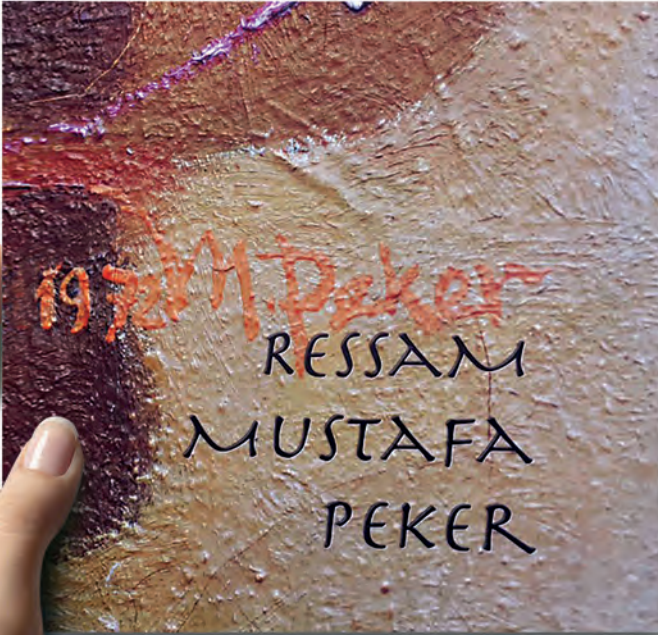 1972 M. Peker
RESSAM
MUSTAFA
PEKER